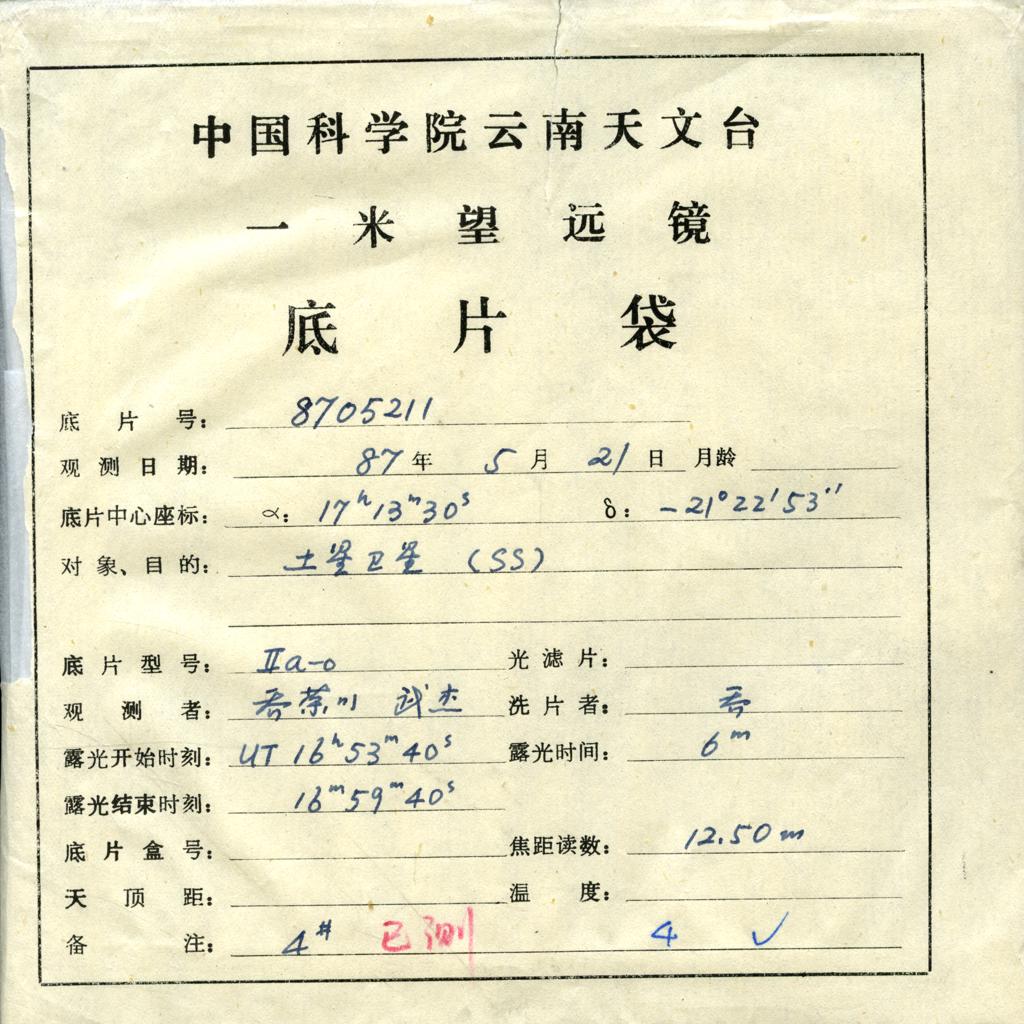 中国科学院云南天文台
一米望远镜
底片袋
底片号: 8705211
观测日期: 87年 5月 21日 月龄
底片中心座标: α: 17h13m30s δ: -21°22'53"
对象、目的: 土星卫星 (SS)
底片型号: IIa-o 光滤片:
观测者: 武杰 洗片者:
露光开始时刻: UT 16h53m40s 露光时间: 6m
露光结束时刻: 16m59m40s
底片盒号: 焦距读数: 12.50m
天顶距: 温度:
备注: 4# 已测 4 ✓